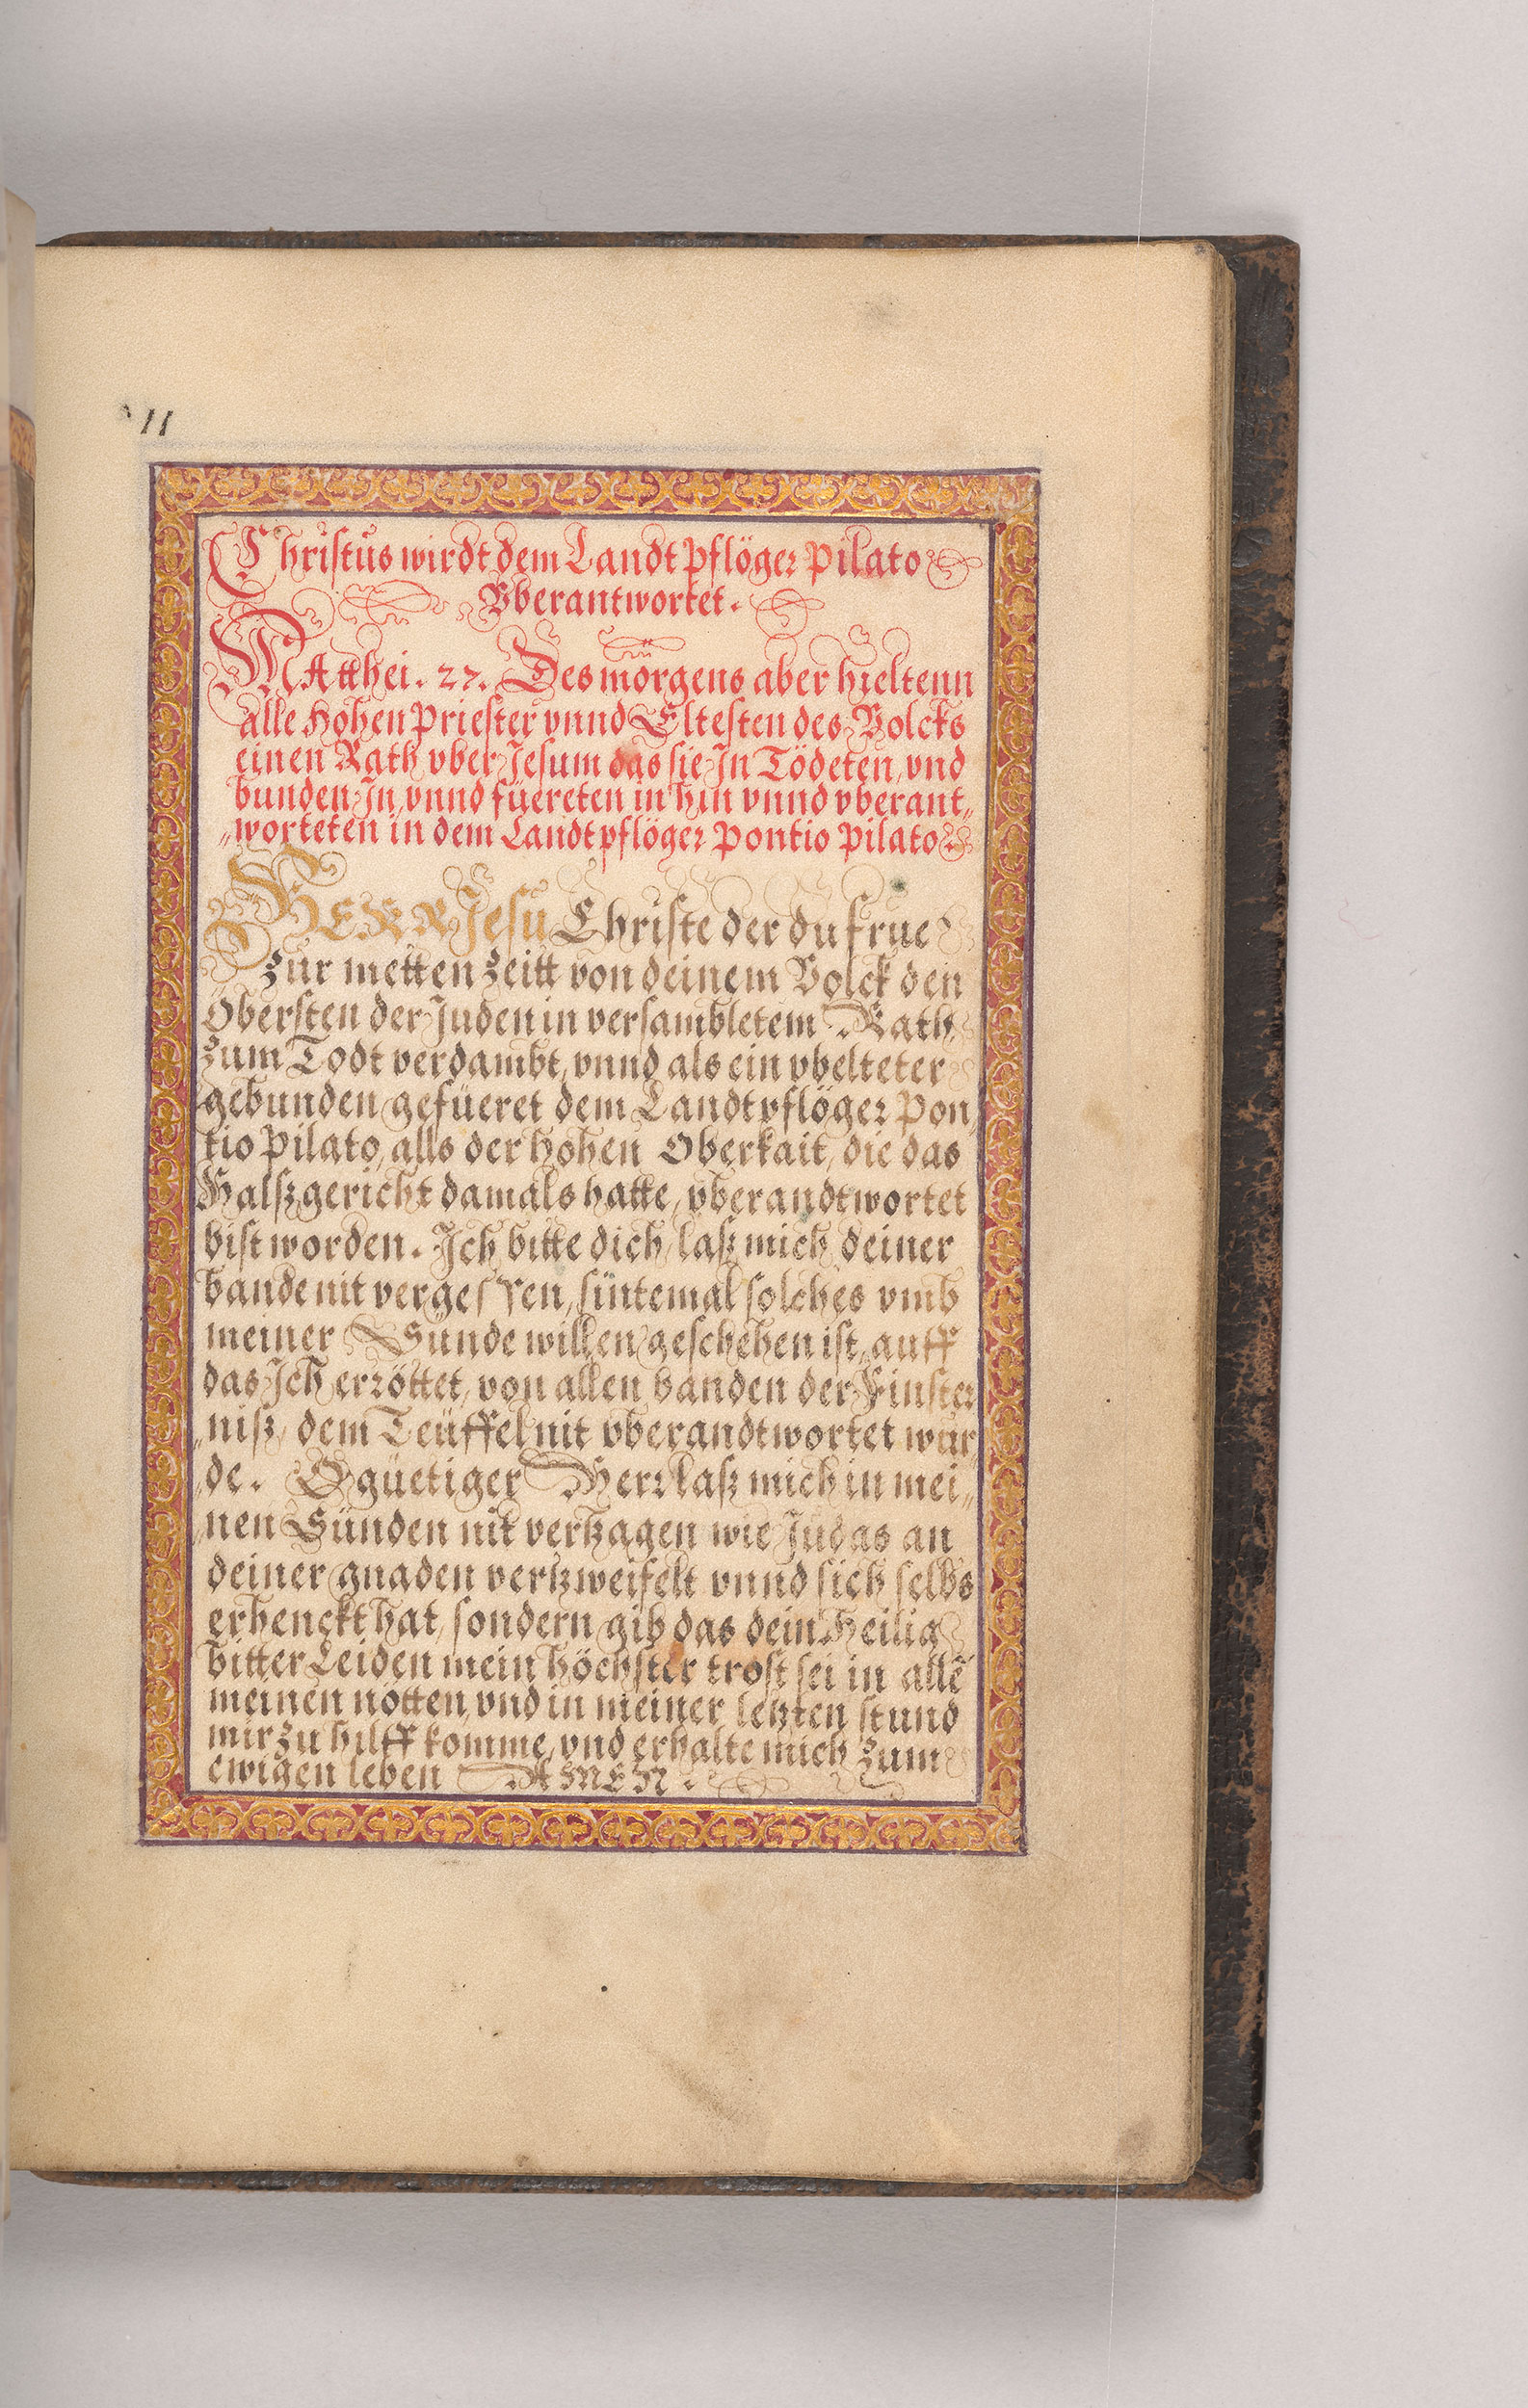 11
Christus wirdt dem Landtpflöger Pilato
Vberantwortet.
MAtthei. 27. Des morgens aber hieltenn
alle Hohen Priester vnnd Eltesten des Volcks
einen Rath vber Jesum das sie In Tödeten, vnd
bunden In, vnnd füereten in hin vnnd vberant„
„worteten in dem Landtpflöger Pontio Pilato
HERR Jesu Christe der du frue
zur metten zeitt von deinem Volck den
Obersten der Juden in versambletem Rath
zum Todt verdambt, vnnd als ein vbelteter
gebunden gefüeret dem Landtpflöger Pon„
tio Pilato, alls der Hohen Oberkait, die das
Halßgericht damals hatte, vberandtwortet
bist worden. Ich bitte dich, laß mich deiner
bande nit vergessen, sintemal solches vmb
meiner Sünde willen geschehen ist, auff
das Ich erröttet, von allen banden der Finster
„niß, dem Teüffel nit vberandtwortet wur„
„de. O güetiger Herr laß mich in mei„
„nen Sünden nit vertzagen wie Judas an
deiner gnaden vertzweifelt vnnd sich selbs
erhenckt hat, sondern gib das dein Heilig
bitter Leiden mein höchster trost sei in allē
meinen nötten, vnd in meiner letzten stund
mir zu hilff komme, vnd erhalte mich zum
ewigen leben AMEN.